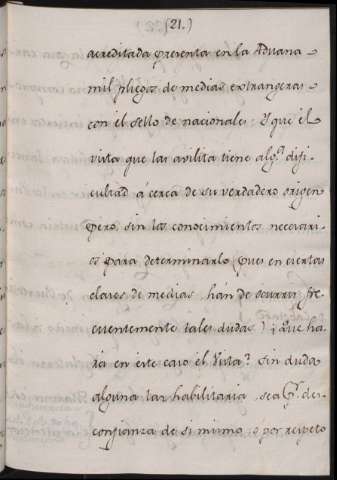 (21.)
acreditada presenta en la Aduana
mil pliegos de medias extrangeras
con el sello de nacionales: Y que el
vista que las avilita tiene alg.ª difi-
cultad á cerca de su verdadero origen
pero sin los conocimientos necesari-
os para determinarlo (pues en ciertas
clases de medias han de ocurrir fre-
cuentemente tales dudas) ¿Que ha-
ria en este caso el Vista? Sin duda
alguna las habilitaria sea p.r des-
confianza de si mismo, ó por respeto